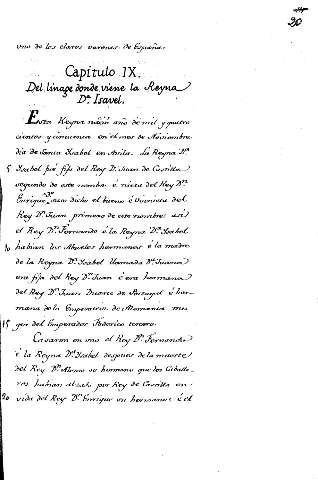 20
uno de los claros varones de España.
Capitulo IX.
Del linage donde viene la Reyna
Dª Isavel.
Esta Reyna nació año de mil y quatro
cientos y cincuenta en el mes de Noviembre
dia de Santa Isabel en Avila. La Reyna Dª
5 Isabel fué fija del Rey Dn Juan de Castilla
segundo de este nombre é nieta del Rey Dn
Enrique 3º dicho el bueno é visnieta del
Rey Dn Juan primero de este nombre: asi
el Rey Dn Fernando é la Reyna Dª Isabel
10 habian los Abuelos hermanos é la madre
de la Reyna Dª Isabel llamada Dª Juana
era fija del Rey Dn Juan é era hermana
del Rey Dn Juan Duarte de Portugal é her-
mana de la Emperatriz de Alemania mu-
15 ger del Emperador Federico tercero.
Casaron en uno el Rey Dn Fernando
é la Reyna Dª Isabel despues de la muerte
del Rey Dn Alonso su hermano que los Caballe-
ros habian alzado por Rey de Castilla en
20 vida del Rey Dn Enrique su hermano é el